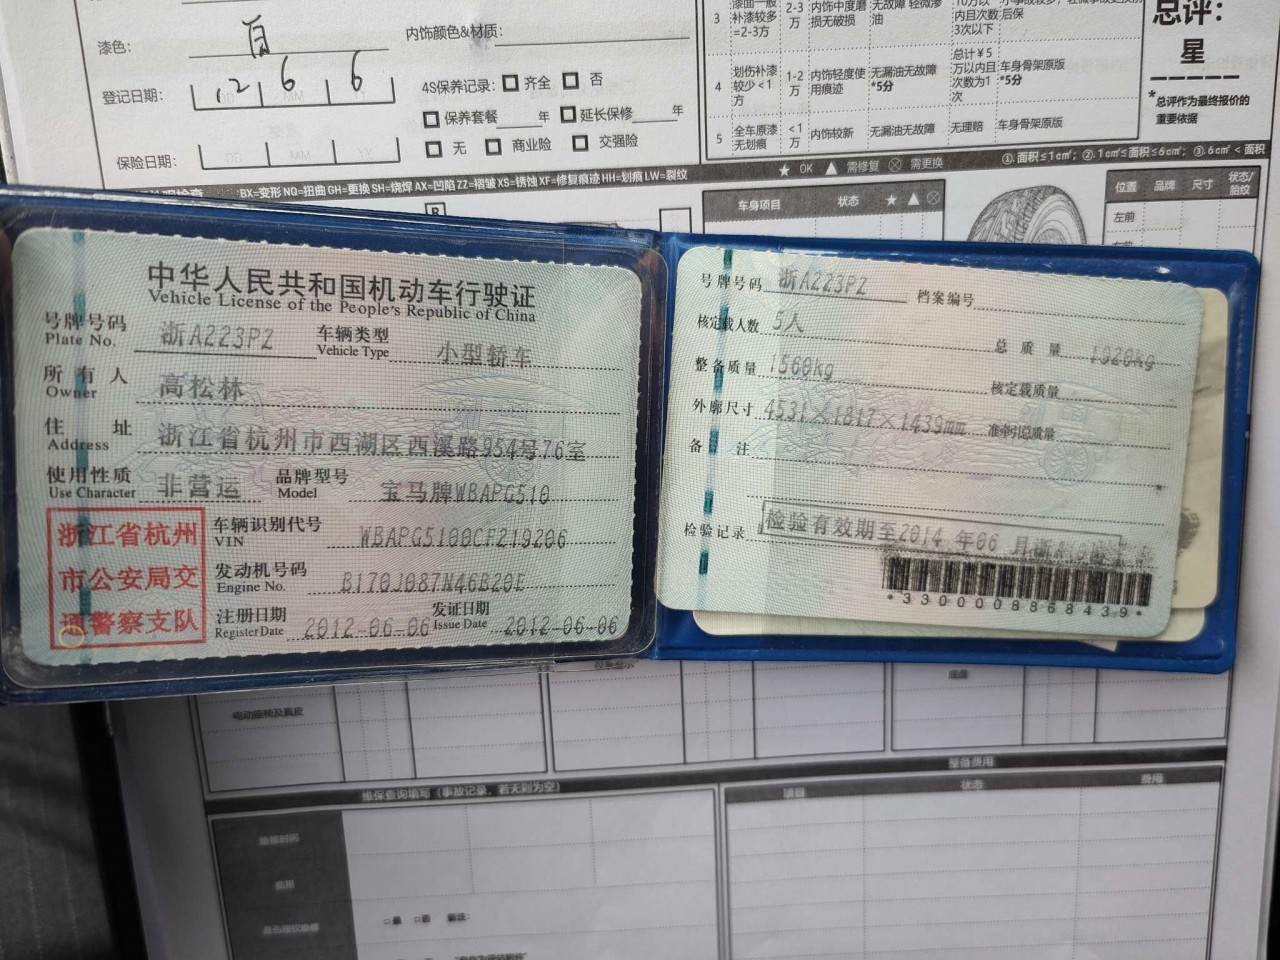 漆色: 白 内饰颜色&材质:
登记日期: 12 6 6 4S保养记录: 齐全 否
保养套餐 年 延长保修 年
保险日期: 无 商业险 交强险
3 补漆较多=2-3方 2-3万 内饰中度磨损无破损 无故障 轻微渗油 内且次数3次以下
4 划伤补漆较少<1方 1-2万 内饰轻度使用痕迹 无漏油无故障 *5分 总计¥5万以内且次数为1次 车身骨架原版 *5分
5 全车原漆无划痕 <1万 内饰较新 无漏油无故障 无理赔 车身骨架原版
总评:
星
*总评作为最终报价的重要依据
BX=变形 NQ=扭曲 GH=更换 SH=烧焊 AX=凹陷 ZZ=褶皱 XS=锈蚀 XF=修复痕迹 HH=划痕 LW=裂纹
★ OK ▲ 需修复 ⊗ 需更换 ①.面积≤1c㎡; ②.1c㎡≤面积≤6c㎡; ③.6c㎡<面积
车身项目 状态 ★ ▲ ⊗
位置 品牌 尺寸 状态/胎纹
左前
中华人民共和国机动车行驶证
Vehicle License of the People's Republic of China
号牌号码 浙A223PZ 车辆类型 小型轿车
Plate No. Vehicle Type
所有人 高松林
Owner
住址 浙江省杭州市西湖区西溪路954号76室
Address
使用性质 非营运 品牌型号 宝马牌WBAPG510
Use Character Model
浙江省杭州市公安局交通警察支队
车辆识别代号 WBAPG5100CF219206
VIN
发动机号码 B170J087N46B20E
Engine No.
注册日期 2012-06-06 发证日期 2012-06-06
Register Date Issue Date
号牌号码 浙A223PZ 档案编号
核定载人数 5人 总质量 1920kg
整备质量 1560kg 核定载质量
外廓尺寸 4531×1817×1439mm 准牵引总质量
备注
检验记录 检验有效期至2014年06月浙A
*3300008868439*
电动座椅及真皮
底盘
整备费用
维保查询填写(事故记录,若无则为空)
项目 状态 费用
费用